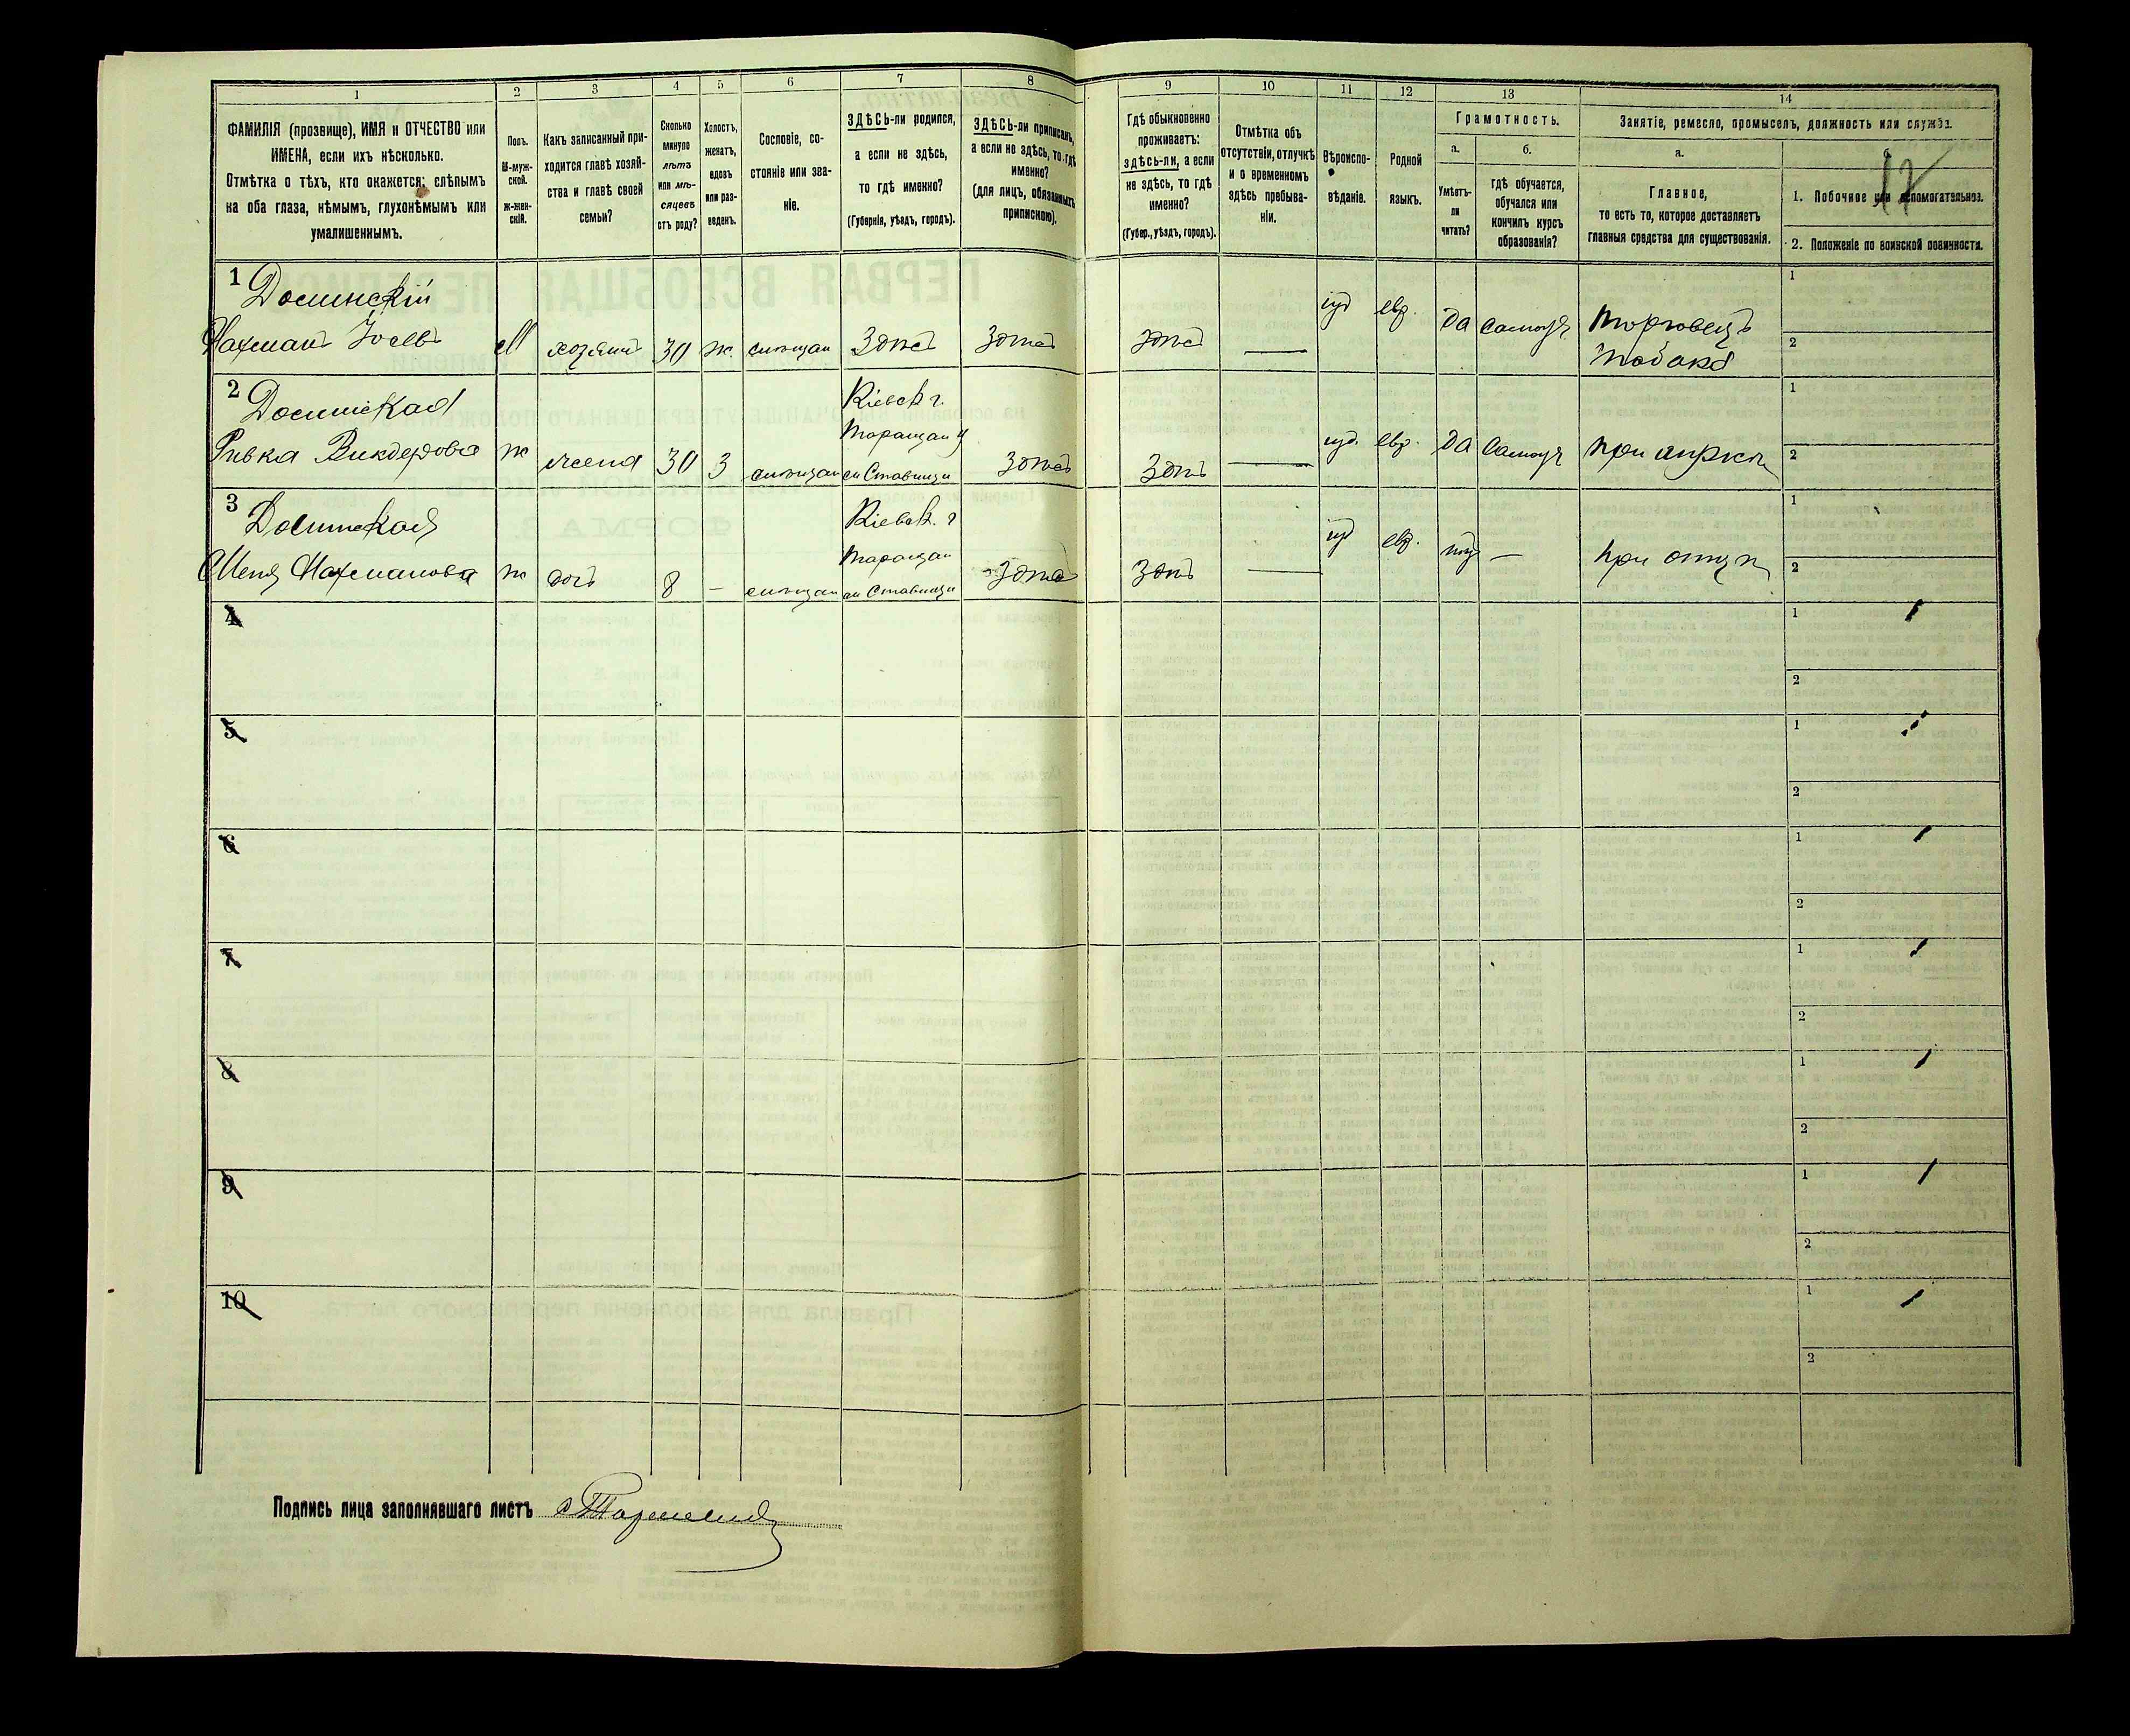 1 2 3 4 5 6 7 8 9 10 11 12 13 14
ФАМИЛІЯ (прозвище), ИМЯ и ОТЧЕСТВО или
ИМЕНА, если ихъ нѣсколько.
Отмѣтка о тѣхъ, кто окажется: слѣпымъ
на оба глаза, нѣмымъ, глухонѣмымъ или
умалишеннымъ.
Полъ.
М-муж-
ской.
Ж-жен-
скій.
Какъ записанный при-
ходится главѣ хозяй-
ства и главѣ своей
семьи?
Сколько
минуло
лѣтъ
или мѣ-
сяцевъ
отъ роду?
Холостъ,
женатъ,
вдовъ
или раз-
веденъ.
Сословіе, со-
стояніе или зва-
ніе.
ЗДѢСЬ-ли родился,
а если не здѣсь,
то гдѣ именно?
(Губернія, уѣздъ, городъ).
ЗДѢСЬ-ли приписанъ,
а если не здѣсь, то гдѣ
именно?
(для лицъ, обязанныхъ
припискою).
Гдѣ обыкновенно
проживаетъ:
здѣсь-ли, а если
не здѣсь, то гдѣ
именно?
(Губер., уѣздъ, городъ).
Отмѣтка объ
отсутствіи, отлучкѣ
и о временномъ
здѣсь пребыва-
ніи.
Вѣроиспо-
вѣданіе.
Родной
языкъ.
Грамотность.
а.
Умѣетъ-
ли
читать?
б.
гдѣ обучается,
обучался или
кончилъ курсъ
образованія?
Занятіе, ремесло, промыселъ, должность или служба.
а.
Главное,
то есть то, которое доставляетъ
главныя средства для существованія.
17
1. Побочное или вспомогательное.
2. Положеніе по воинской повинности.
1 Досинскій
Нахманъ Іосевъ М хозяинъ 30 ж. мѣщан Здѣсь Здѣсь здѣсь — іуд евр. да самоуч торговецъ
табака
1
2
2 Досинская
Ривка ж жена 30 З мѣщан
Кіевск г.
Таращан у
м Ставищи
Здѣсь Здѣсь — іуд. евр. да самоуч при мужѣ
1
2
3 Досинская
Нахманова ж дочь 8 — мѣщан
Кіевск. г
Таращан
м Ставищи
Здѣсь Здѣсь — іуд евр. нѣт — при отцѣ
1
2
4 1
2
5 1
2
6 1
2
7 1
2
8 1
2
9 1
2
10 1
2
Подпись лица заполнявшаго листъ